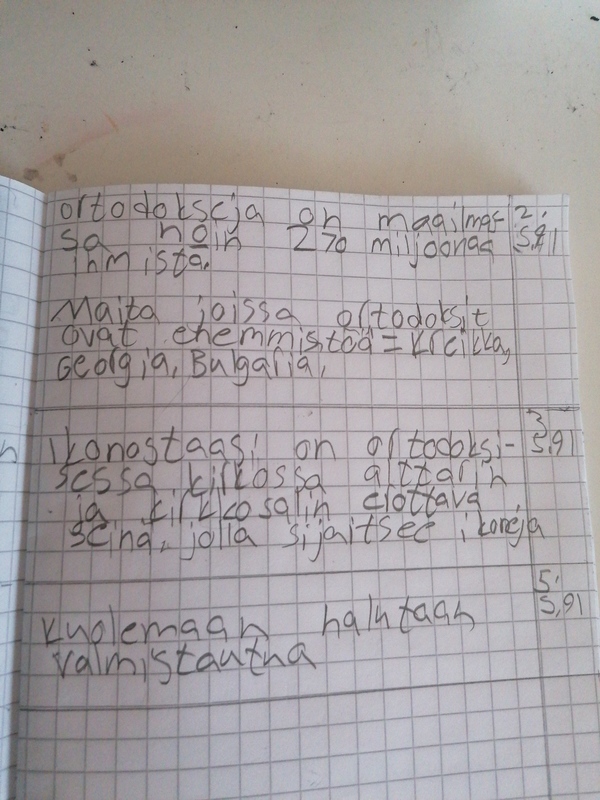 ortodokseja on maailmas- 2.
sa noin 270 miljoonaa s.91
ihmistä.
Maita joissa ortodoksit
ovat enemmistöä = kreikka,
Georgia, Bulgaria,
Ikonostaasi on ortodoksi- 3
sessa kirkossa alttarin s.91
ja kirkkosalin erottava
seinä, jolla sijaitsee ikoneja
5.
kuolemaan halutaan s.91
valmistautua